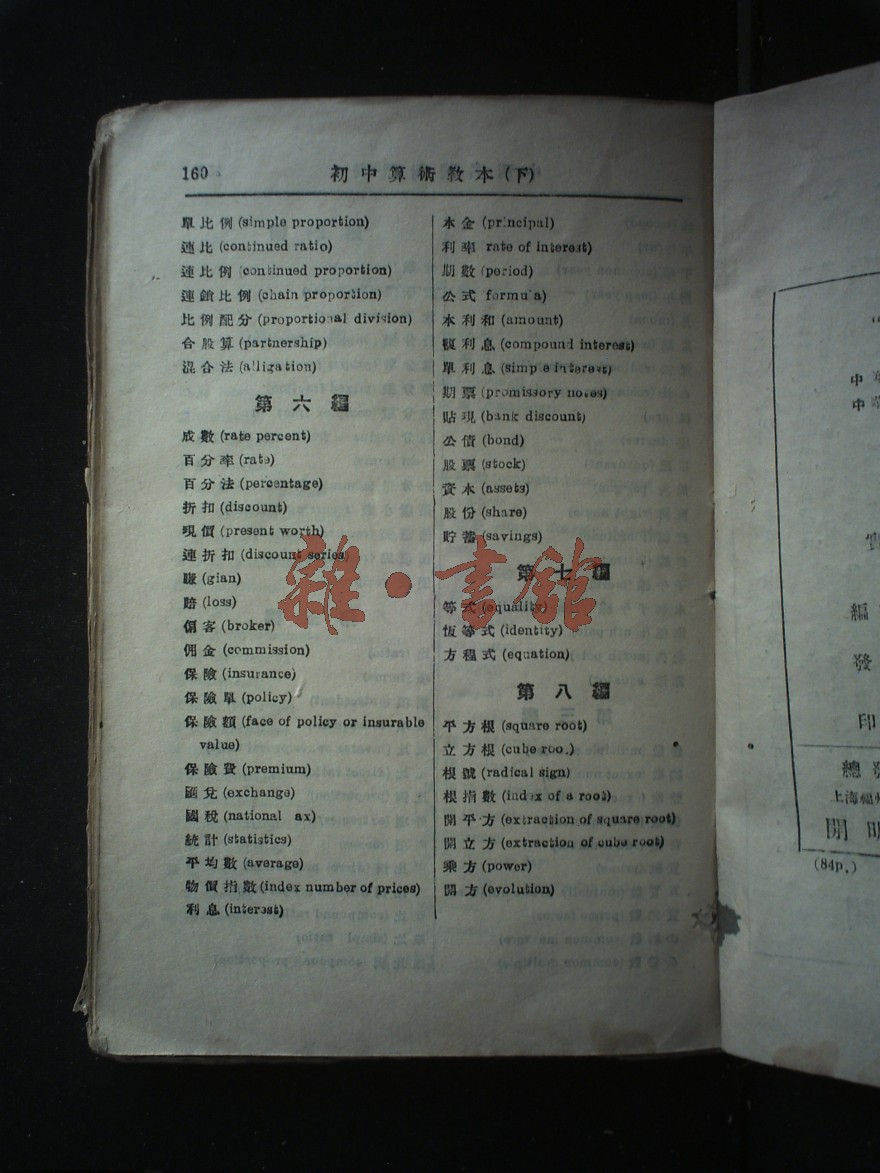 160
初中算術教本(下)
單比例 (simple proportion)
連比 (continued ratio)
連比例 (continued proportion)
連鎖比例 (chain proportion)
比例配分 (proportional division)
合股算 (partnership)
混合法 (alligation)
第六編
成數 (rate percent)
百分率 (rate)
百分法 (percentage)
折扣 (discount)
現價 (present worth)
連折扣 (discount series)
賺 (gian)
賠 (loss)
傭客 (broker)
佣金 (commission)
保險 (insurance)
保險單 (policy)
保險額 (face of policy or insurable
value)
保險費 (premium)
匯兌 (exchange)
國稅 (national ax)
統計 (statistics)
平均數 (average)
物價指數 (index number of prices)
利息 (interest)
本金 (principal)
利率 rate of interest)
期數 (period)
公式 formu a)
本利和 (amount)
複利息 (compound interest)
單利息 (simp e interest)
期票 (promissory notes)
貼現 (bank discount)
公債 (bond)
股票 (stock)
資本 (assets)
股份 (share)
貯蓄 (savings)
第七編
等式 (equality)
恆等式 (identity)
方程式 (equation)
第八編
平方根 (square root)
立方根 (cube roo.)
根號 (radical sign)
根指數 (ind x of a root)
開平方 (extraction of square root)
開立方 (extraction of cube root)
乘方 (power)
開方 (evolution)
雜·書館
中
中
編
發
印
總發
上海福州
開明
(84p.)